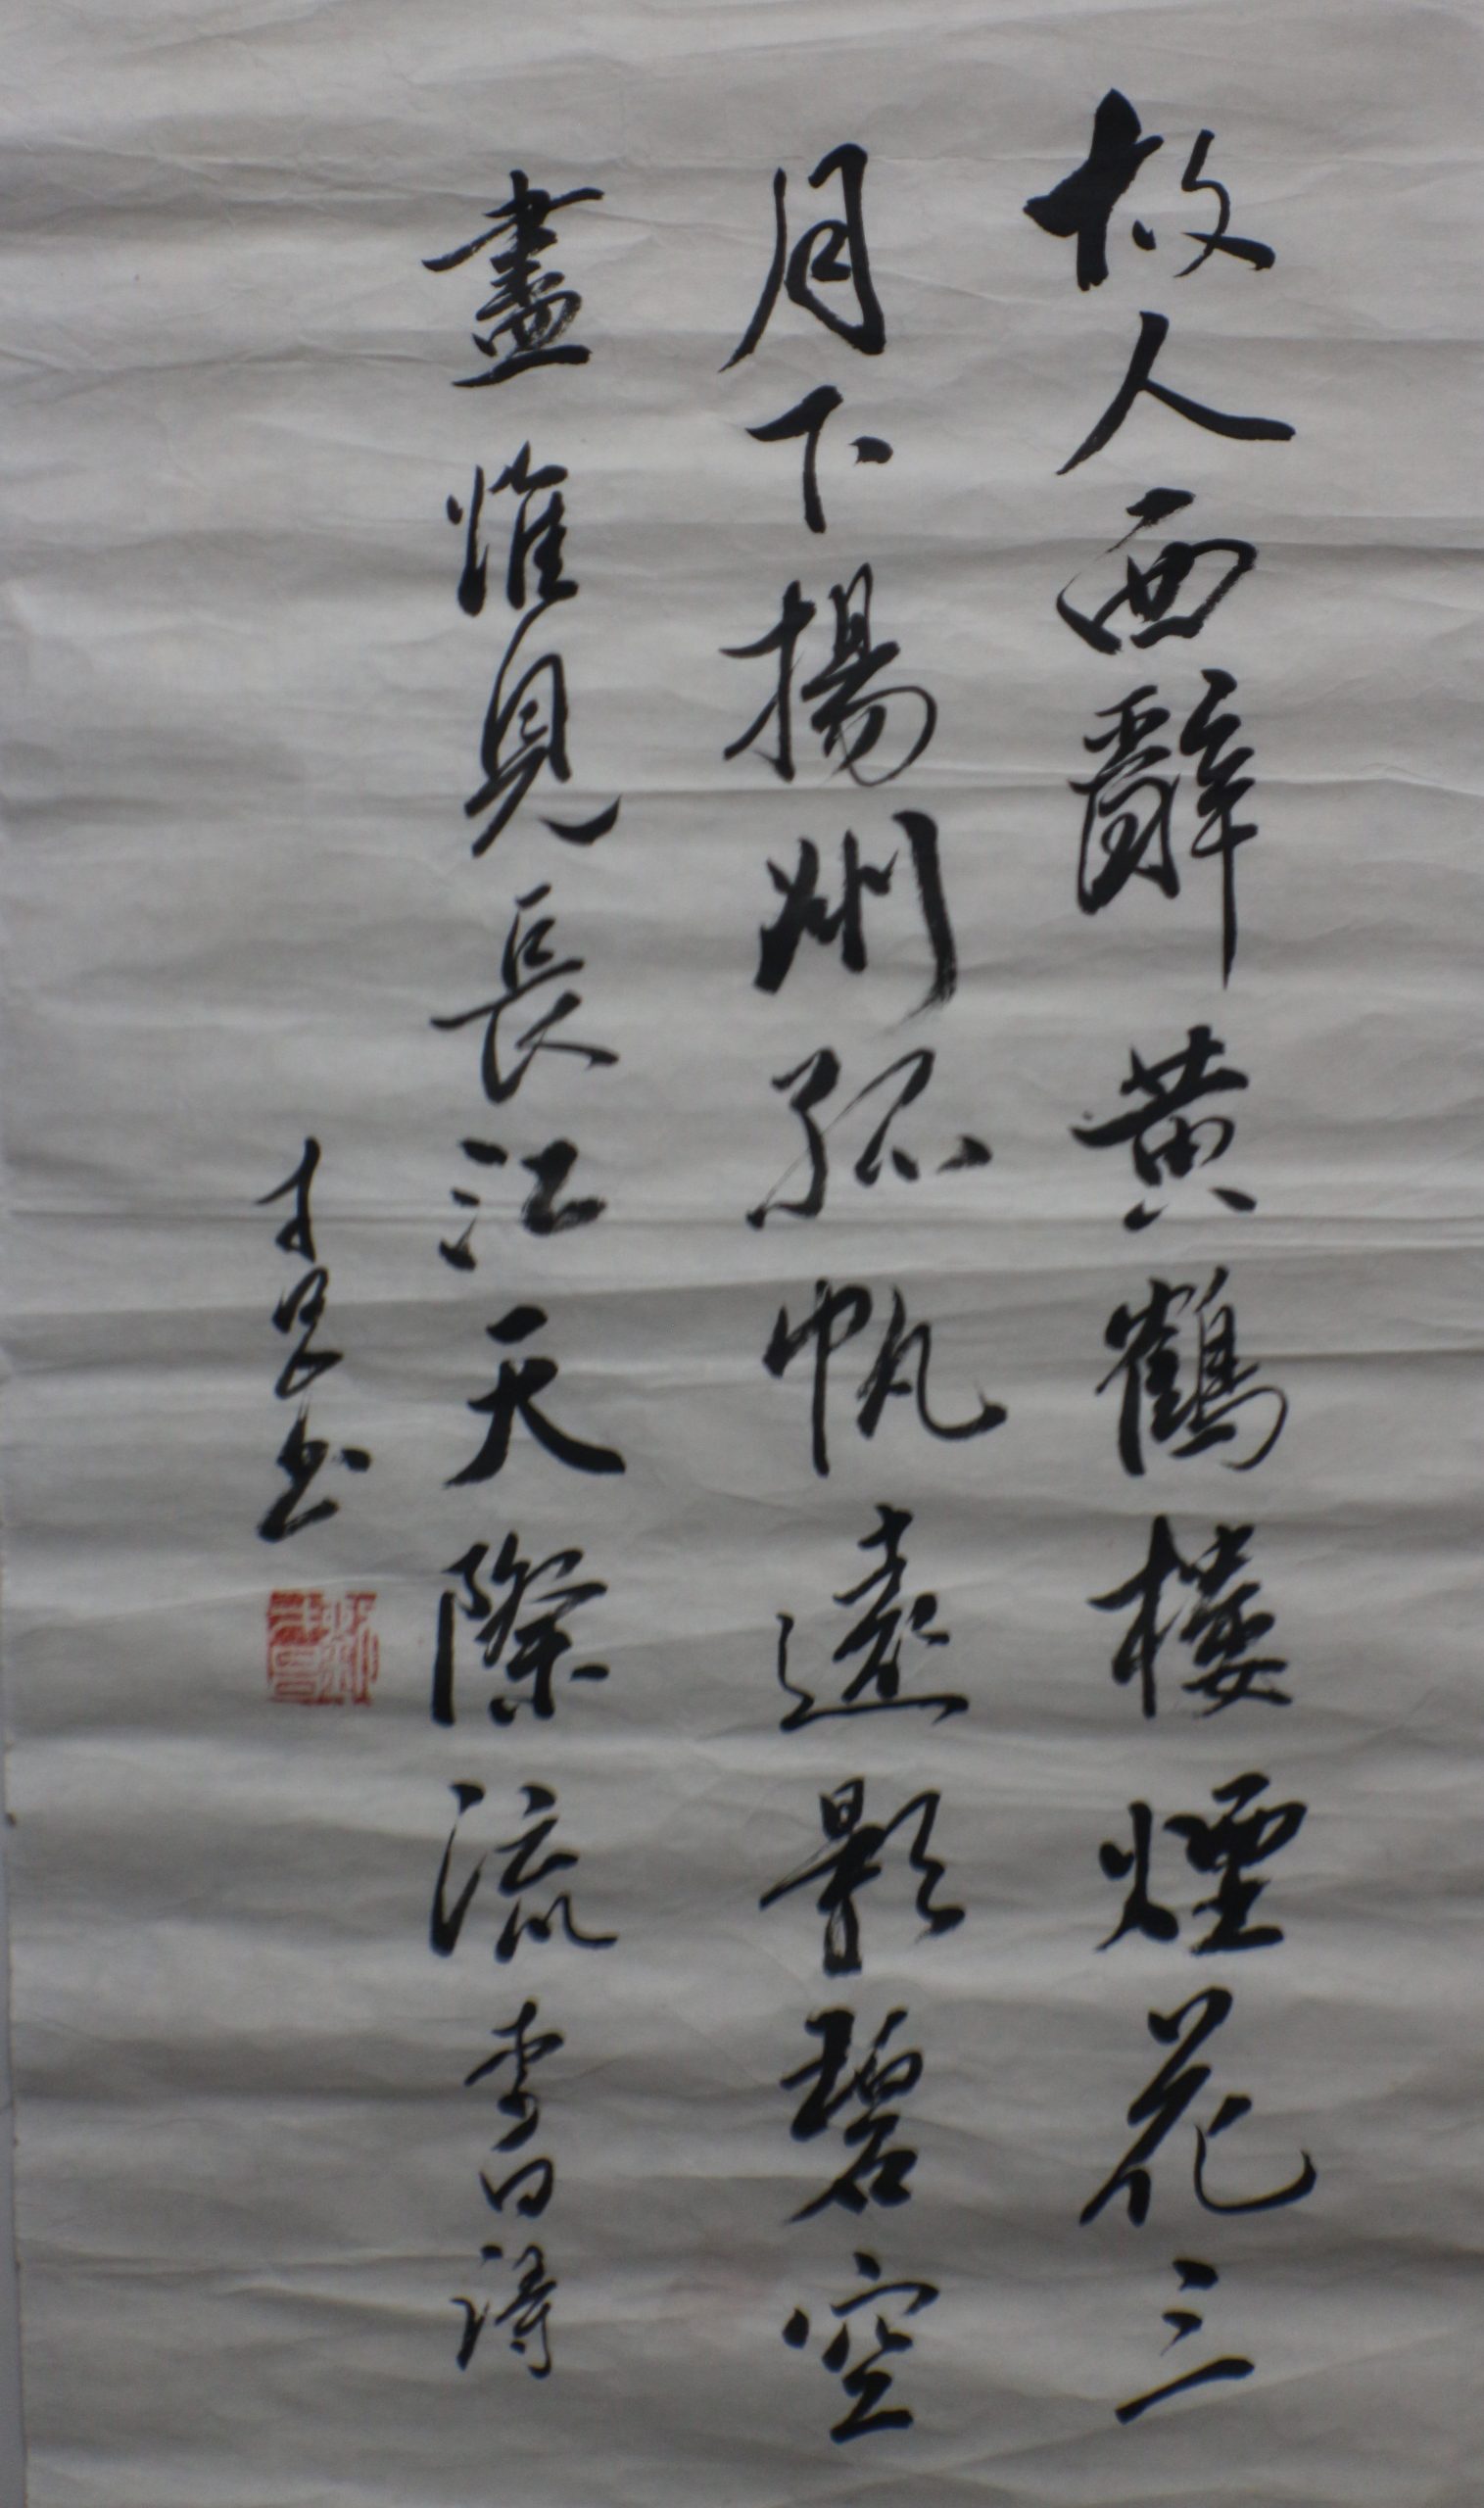 故人西辭黄鶴樓煙花三
月下揚州孤帆遠影碧空
盡惟見長江天際流李白詩
書